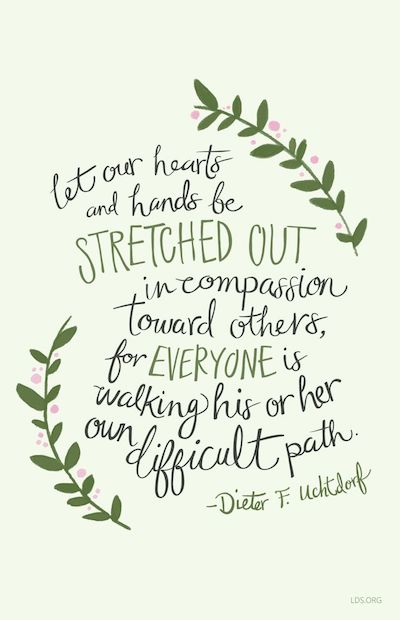 let our hearts
and hands be
STRETCHED OUT
in compassion
toward others,
for EVERYONE is
walking his or her
own difficult path.
-Dieter F. Uchtdorf
LDS.ORG